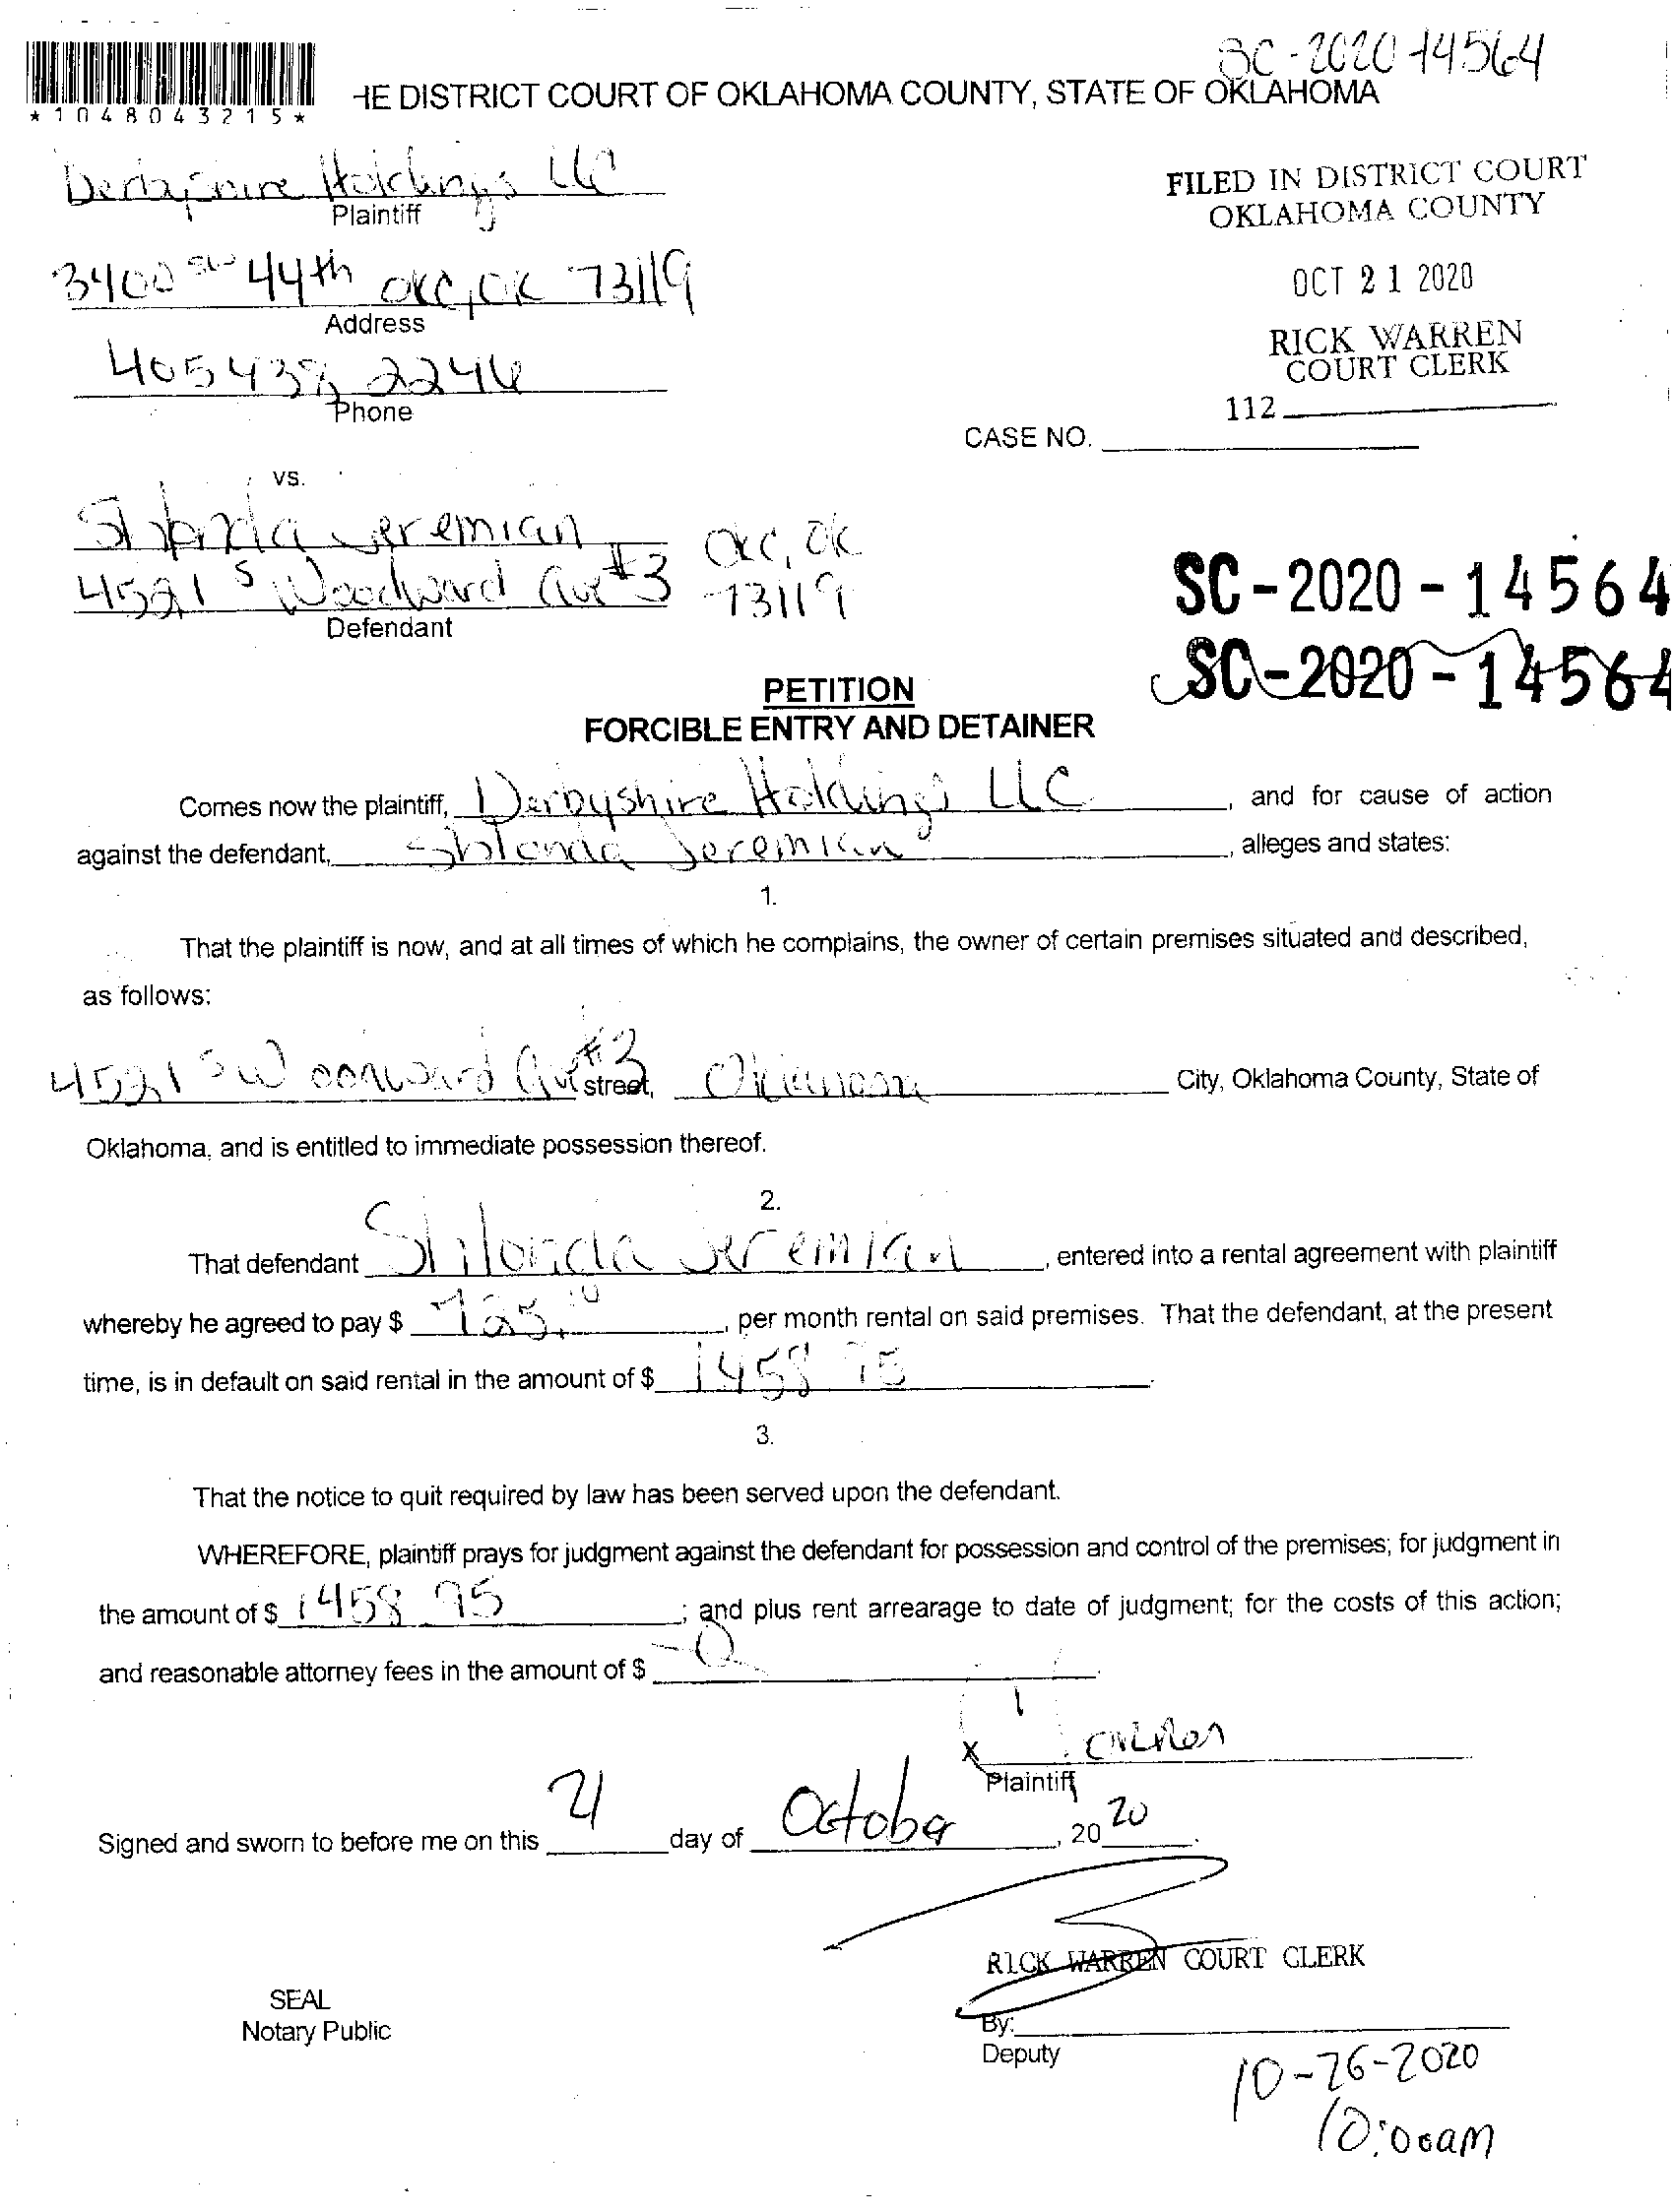 SC-2020-14564
HE DISTRICT COURT OF OKLAHOMA COUNTY, STATE OF OKLAHOMA
*1048043215*
Derbyshire Holdings LLC
Plaintiff
FILED IN DISTRICT COURT
OKLAHOMA COUNTY
3400 SW 44th OKC, OK 73119
Address
OCT 21 2020
RICK WARREN
COURT CLERK
405 438 2246
Phone
112
CASE NO.
vs.
Shlonda Jeremian
4521 S Woodward Ave #3 OKC, OK 73119
Defendant
SC-2020-14564
SC-2020-14564
PETITION
FORCIBLE ENTRY AND DETAINER
Comes now the plaintiff, Derbyshire Holdings LLC, and for cause of action
against the defendant, Shlonda Jeremian, alleges and states:
1.
That the plaintiff is now, and at all times of which he complains, the owner of certain premises situated and described,
as follows:
4521 S Woodward Ave #3 street, Oklahoma City, Oklahoma County, State of
Oklahoma, and is entitled to immediate possession thereof.
2.
That defendant Shlonda Jeremian, entered into a rental agreement with plaintiff
whereby he agreed to pay $ 725.00, per month rental on said premises. That the defendant, at the present
time, is in default on said rental in the amount of $ 1458 95.
3.
That the notice to quit required by law has been served upon the defendant.
WHEREFORE, plaintiff prays for judgment against the defendant for possession and control of the premises; for judgment in
the amount of $ 1458 95; and plus rent arrearage to date of judgment; for the costs of this action;
and reasonable attorney fees in the amount of $ -0-.
X
Plaintiff
Signed and sworn to before me on this 21 day of October, 2020.
RICK WARREN COURT CLERK
SEAL
Notary Public
By:
Deputy
10-26-2020
10:00am